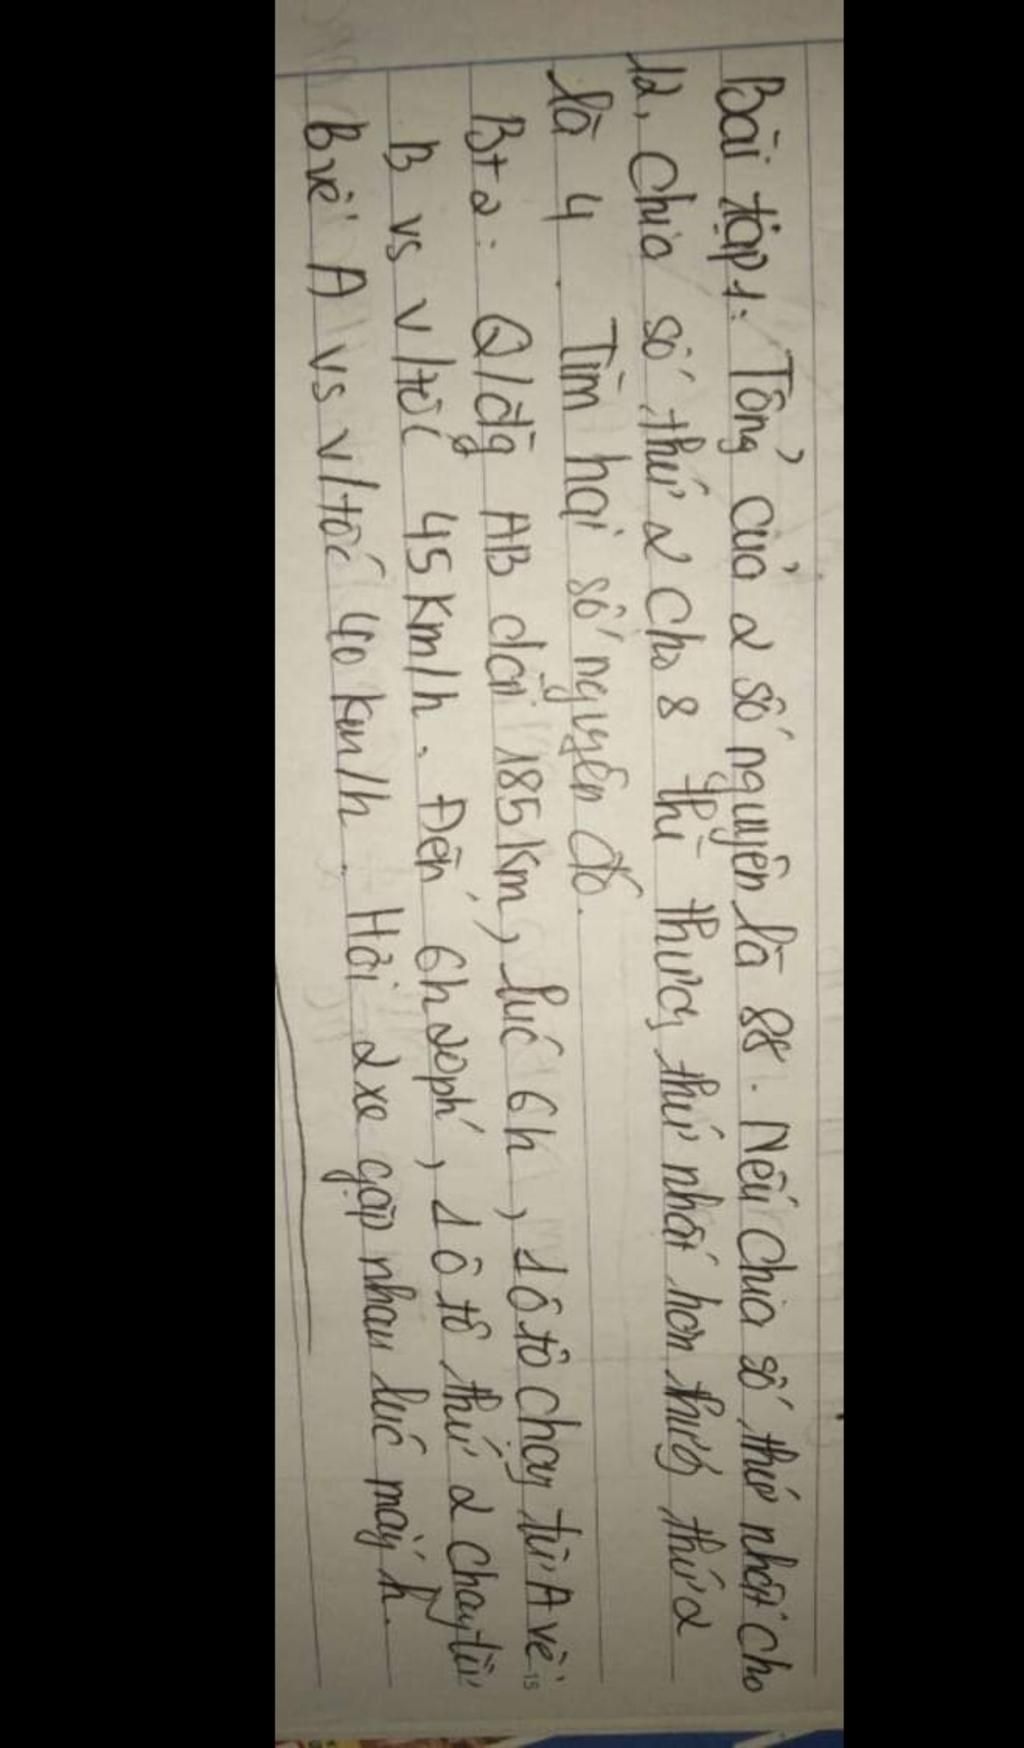 Bài tập 1: Tổng của 2 số nguyên là 88. Nếu chia số thứ nhất cho
12, chia số thứ 2 cho 8 thì thương thứ nhất hơn thương thứ 2
là 4. Tìm hai số nguyên đó.
Bt 2: Q/đg AB dài 185km, lúc 6h, 1 ô tô chạy từ A về
B vs v/tốc 45 km/h. Đến 6h20ph', 1 ô tô thứ 2 chạy từ
B về A vs v/tốc 40 km/h. Hỏi 2 xe gặp nhau lúc mấy h.
15